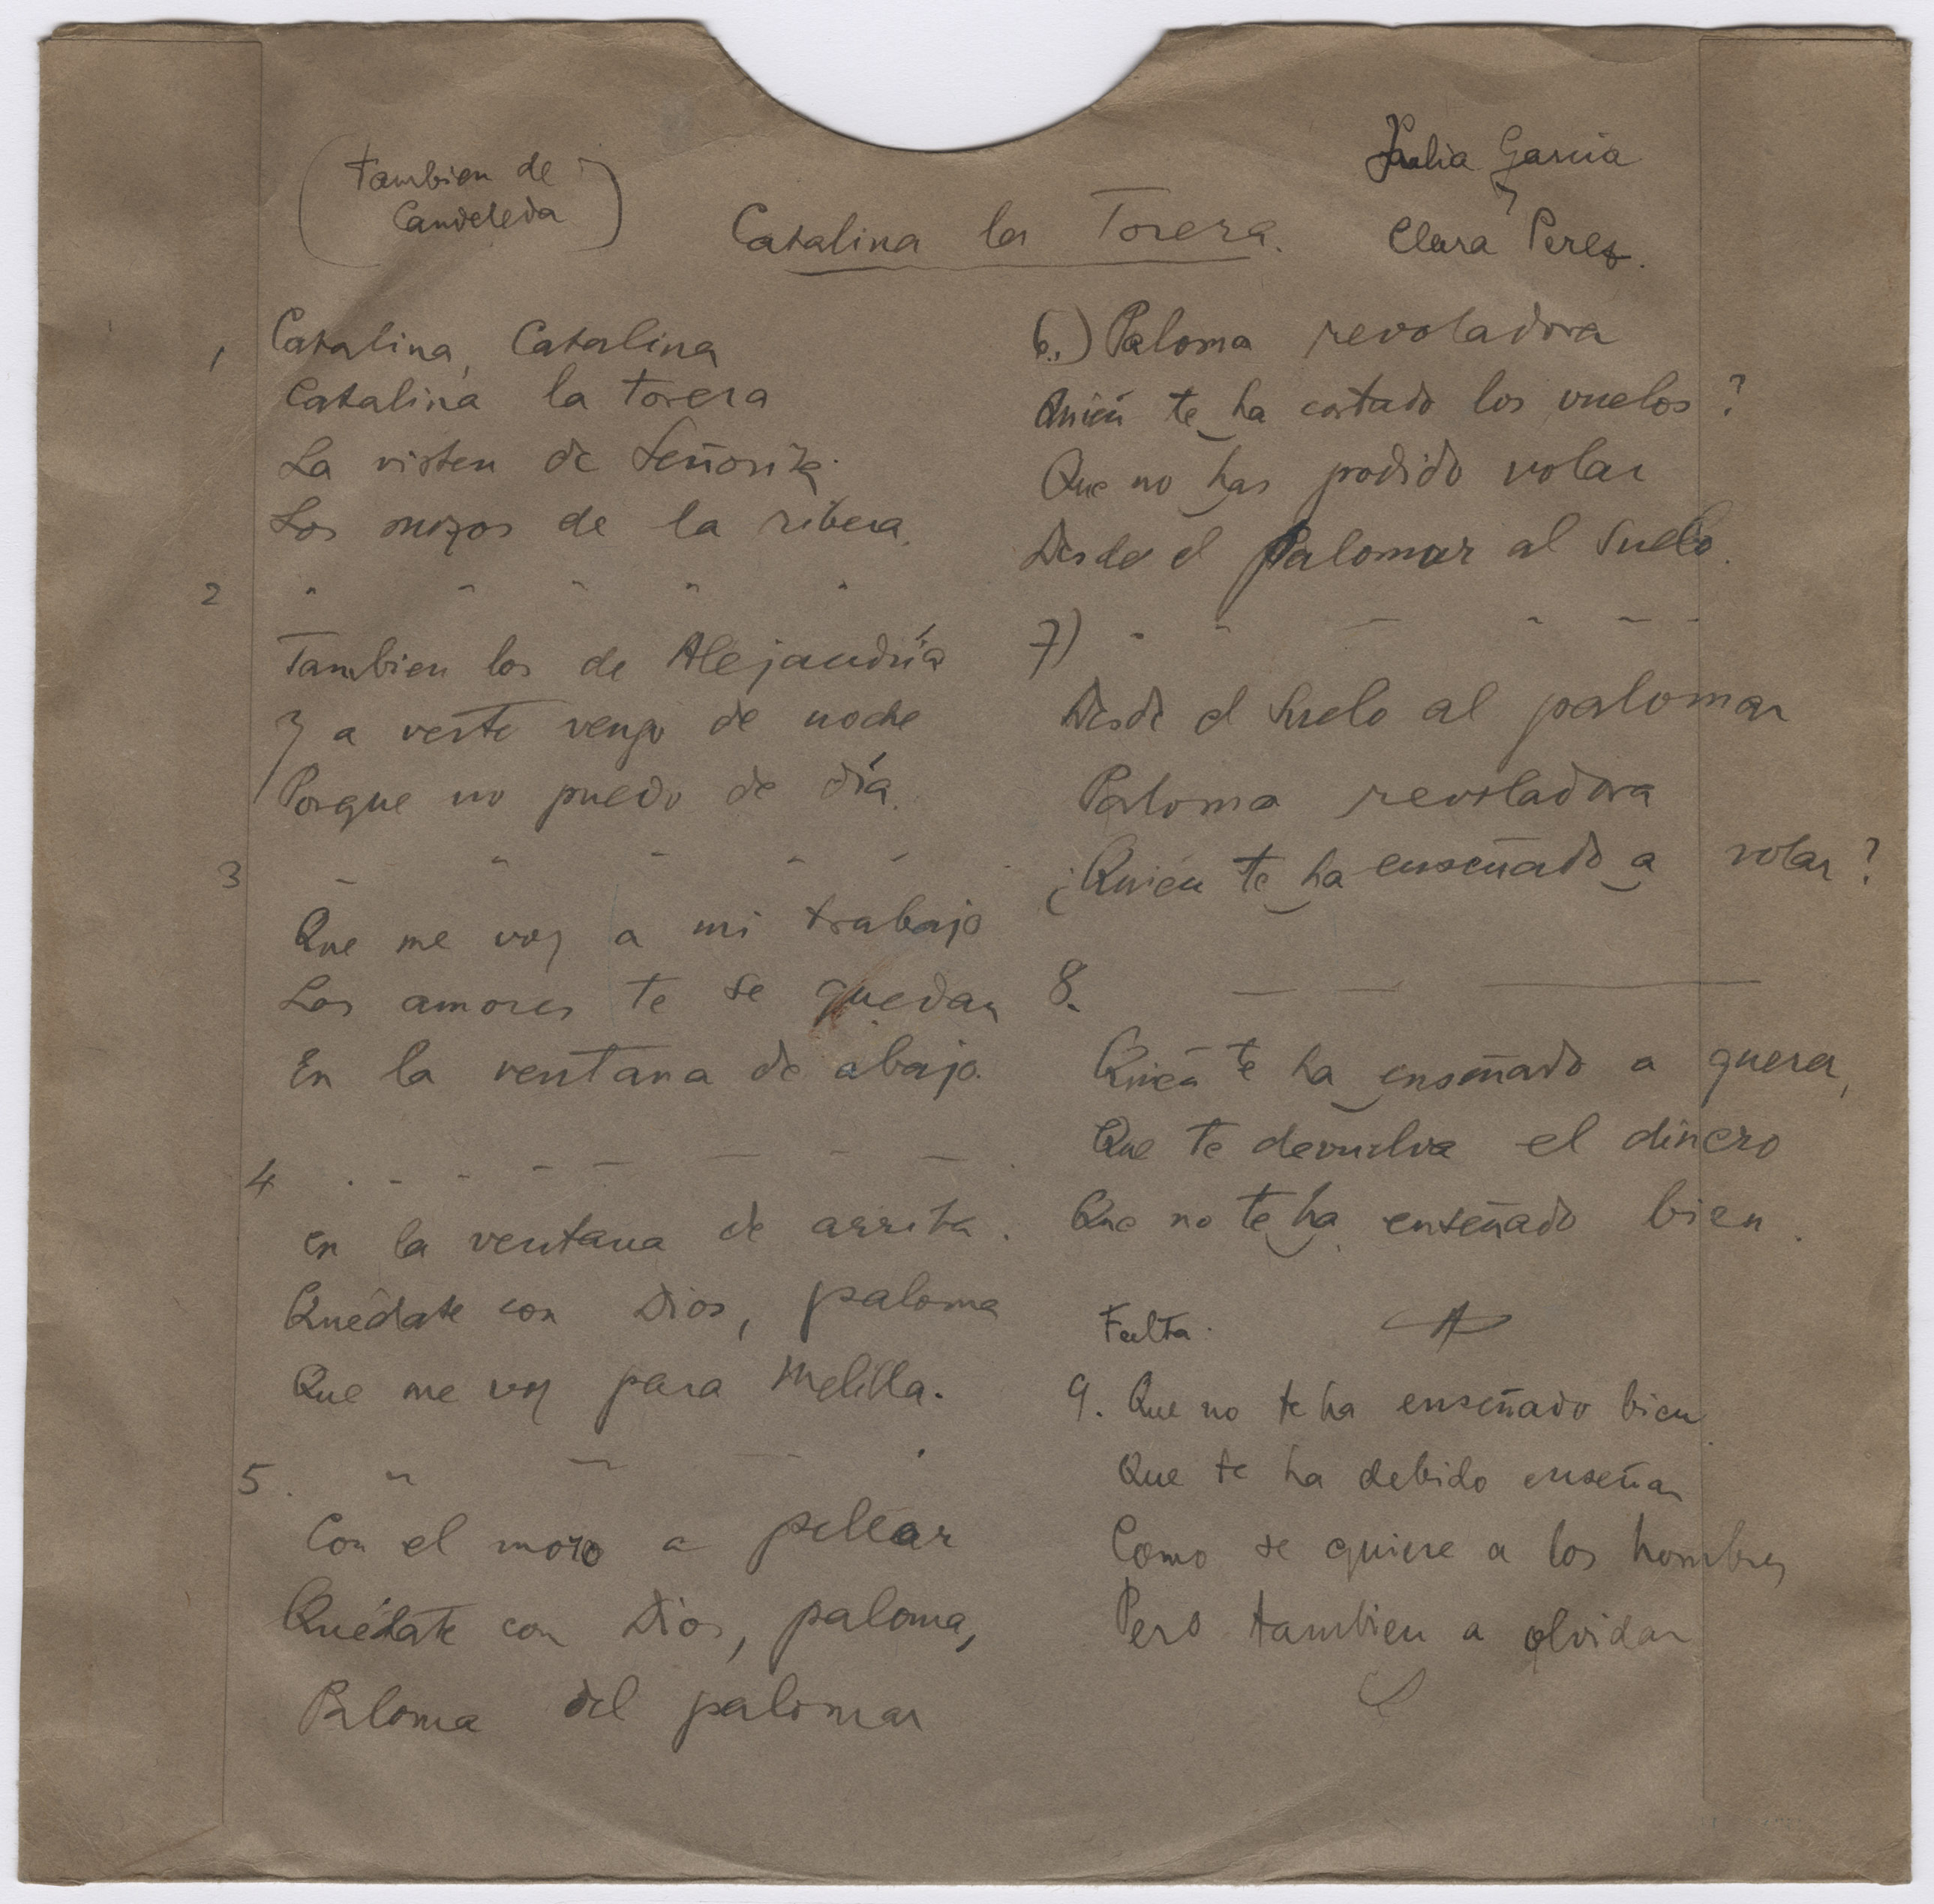 (Tambien de
Candeleda)
Julia Garcia
y
Clara Perez.
Catalina la Torera.
1 Catalina, Catalina
Catalina la torera
La visten de señorita
Los mozos de la ribera.
2 " " " " "
Tambien los de Alejandría
Y a verte vengo de noche
Porque no puedo de día.
3 " " " " "
Que me voy a mi trabajo
Los amores te se quedan
En la ventana de abajo.
4 . - - - - - - - .
en la ventana de arriba.
Quedate con Dios, paloma
Que me voy para Melilla.
5. " - - .
Con el moro a pelear
Quédate con Dios, paloma,
Paloma del palomar
6.) Paloma revoladora
Quién te ha cortado los vuelos?
Que no has podido volar
Desde el palomar al suelo.
7) " " - " - -
Desde el suelo al palomar
Paloma revoladora
¿Quién te ha enseñado a volar?
8. — — —
Quien te ha enseñado a querer,
Que te devuelva el dinero
Que no te ha enseñado bien.
Falta.
9. Que no te ha enseñado bien
Que te ha debido enseñar
Como se quiere a los hombres
Pero tambien a olvidar